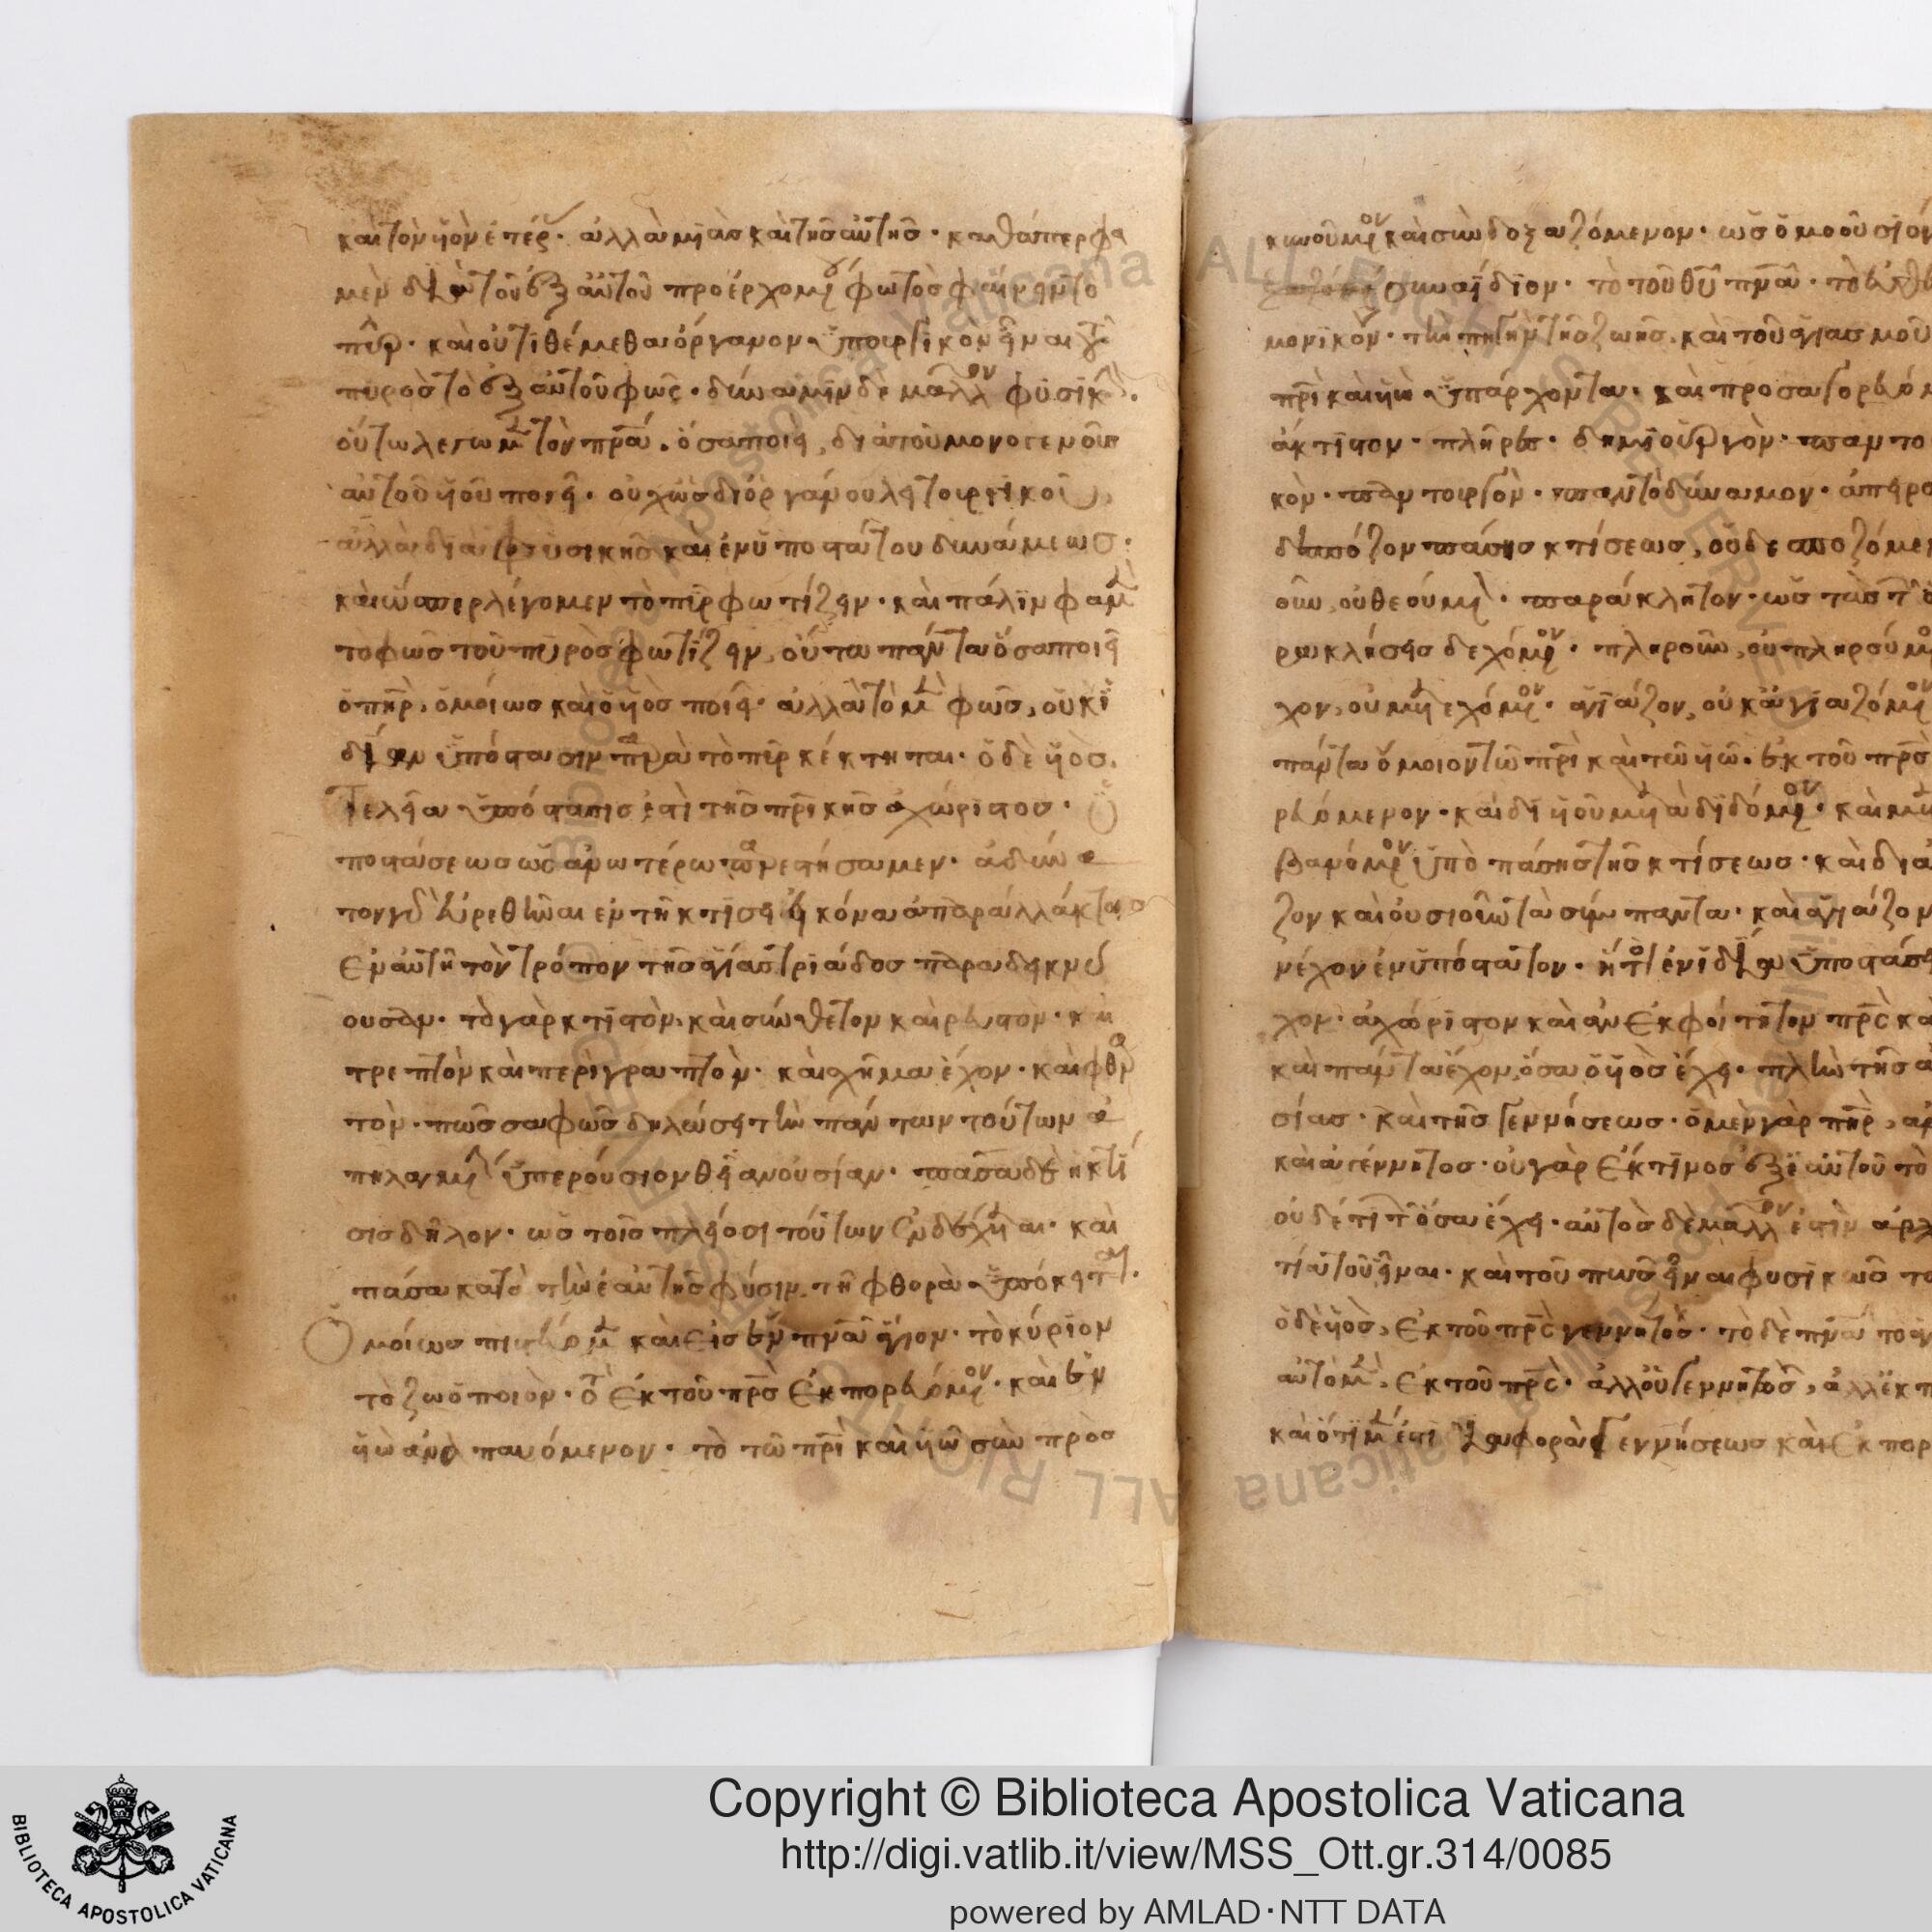 καὶ τὸν υἱὸν ἑτέρου· ἀλλὰ μιᾶς καὶ τῆς αὐτῆς· καθάπερ φα
μὲν διὰ τοῦ ἐξ αὐτοῦ προερχομένου φωτὸς φαίνειν τὸ
πῦρ· καὶ οὐ τιθέμεθα ὄργανον ὑπουργικὸν εἶναι τοῦ
πυρὸς τὸ ἐξ αὐτοῦ φῶς· δύναμιν δὲ μᾶλλον φυσικήν·
οὕτω λέγωμεν τὸν πρα· ὅσα ποιεῖ, διὰ τοῦ μονογενοῦς
αὐτοῦ υἱοῦ ποιεῖ· οὐχ ὡς δι' ὀργάνου λειτουργικοῦ,
ἀλλὰ διὰ φυσικῆς καὶ ἐνυποστάτου δυνάμεως·
καὶ ὥσπερ λέγομεν τὸ πῦρ φωτίζειν· καὶ πάλιν φαμὲν
τὸ φῶς τοῦ πυρὸς φωτίζειν, οὕτω πάντα ὅσα ποιεῖ
ὁ πηρ, ὁμοίως καὶ ὁ υἱὸς ποιεῖ· ἀλλὰ τὸ μὲν φῶς, οὐκ ἰ
δίαν ὑπόστασιν παρὰ τὸ πῦρ κέκτηται· ὁ δὲ υἱὸς,
τελεία ὑπόστασις ἐστὶ τῆς πρικῆς ἀχώριστος· ὑ
ποστάσεως ὡς ἀνωτέρω παρεστήσαμεν· ἀδύνα
τον γὰρ εὑρεθῆναι ἐν τῇ κτίσει εἰκόνα ἀπαραλλάκτως
ἐν αὐτῇ τὸν τρόπον τῆς ἁγίας τριάδος παραδεικνύ
ουσαν· τὸ γὰρ κτιστὸν, καὶ σύνθετον καὶ ρευστὸν· καὶ
τρεπτὸν καὶ περιγραπτὸν· καὶ σχῆμα ἔχον· καὶ φθαρ
τὸν· πῶς σαφῶς δηλώσει τὴν πάντων τούτων ἀ
πηλαγμένην ὑπερούσιον θείαν οὐσίαν· πᾶσα δὲ ἡ κτί
σις δῆλον· ὡς τοῖς πλείοσι τούτων ἐνδέχεται· καὶ
πᾶσα κατὰ τὴν ἑαυτῆς φύσιν τῇ φθορᾷ ὑπόκειται·
Ὁμοίως πιστεύομεν καὶ εἰς ἓν πνα ἅγιον· τὸ κύριον
τὸ ζωοποιὸν· τὸ ἐκ τοῦ πρς ἐκπορευόμενον· καὶ ἐν
υἱῷ ἀναπαυόμενον· τὸ τῷ πρὶ καὶ υἱῷ συν προσ
κυνούμενον καὶ συνδοξαζόμενον· ὡς ὁμοούσιόν
συναΐδιον· τὸ τοῦ θυ πνα· τὸ εὐθὲ
μονικὸν· τὴν πηγὴν τῆς ζωῆς, καὶ τοῦ ἁγιασμοῦ
πρὶ καὶ υἱῷ ὑπάρχοντα· καὶ προσαγορευόμ
ἄκτιστον· πλῆρες· δημιουργὸν· παντο
κὸν· παντουργὸν· παντοδύναμον· ἀπειρο
δεσπόζον πάσης κτίσεως, οὐ δεσποζόμεν
οῦν, οὐ θεούμενον· παράκλητον· ὡς τὰς
ρακλήσεις δεχόμενον· πληροῦν, οὐ πληρούμε
χον, οὐ μετεχόμενον· ἁγιάζον, οὐκ ἁγιαζόμενον
πάντα ὅμοιον τῷ πρὶ καὶ τῷ υἱῷ· ἐκ τοῦ πρς
ρευόμενον· καὶ δι' υἱοῦ μεταδιδόμενον· καὶ με
βανόμενον ὑπὸ πάσης τῆς κτίσεως· καὶ δι' ἑα
ζον καὶ οὐσιοῦν τὰ σύμπαντα· καὶ ἁγιάζον
νέχον ἐνυπόστατον· ἤτοι ἐν ἰδίᾳ ὑποστάσει
χον· ἀχώριστον καὶ ἀνεκφοίτητον πρς κα
καὶ πάντα ἔχον, ὅσα ὁ υἱὸς ἔχει· πλὴν τῆς ἀ
σίας· καὶ τῆς γεννήσεως· ὁ μὲν γὰρ πηρ, ἀν
καὶ ἀγέννητος· οὐ γὰρ ἔκ τινος ἐξ αὐτοῦ τὸ
οὐδέ τι τῶν ὅσα ἔχει· αὐτὸς δὲ μᾶλλον ἐστὶν ἀρχ
τία τοῦ εἶναι· καὶ τοῦ πῶς εἶναι φυσικῶς το
ὁ δὲ υἱὸς, ἐκ τοῦ πρς γεννητός· τὸ δὲ πνα τὸ ἅγ
αὐτὸ μὲν, ἐκ τοῦ πρς· ἀλλ' οὐ γεννητῶς, ἀλλ' ἐκπ
καὶ ὅτι μὲν ἐστὶ διαφορὰ γεννήσεως καὶ ἐκπορ
Copyright © Biblioteca Apostolica Vaticana
http://digi.vatlib.it/view/MSS_Ott.gr.314/0085
powered by AMLAD·NTT DATA
BIBLIOTECA APOSTOLICA VATICANA